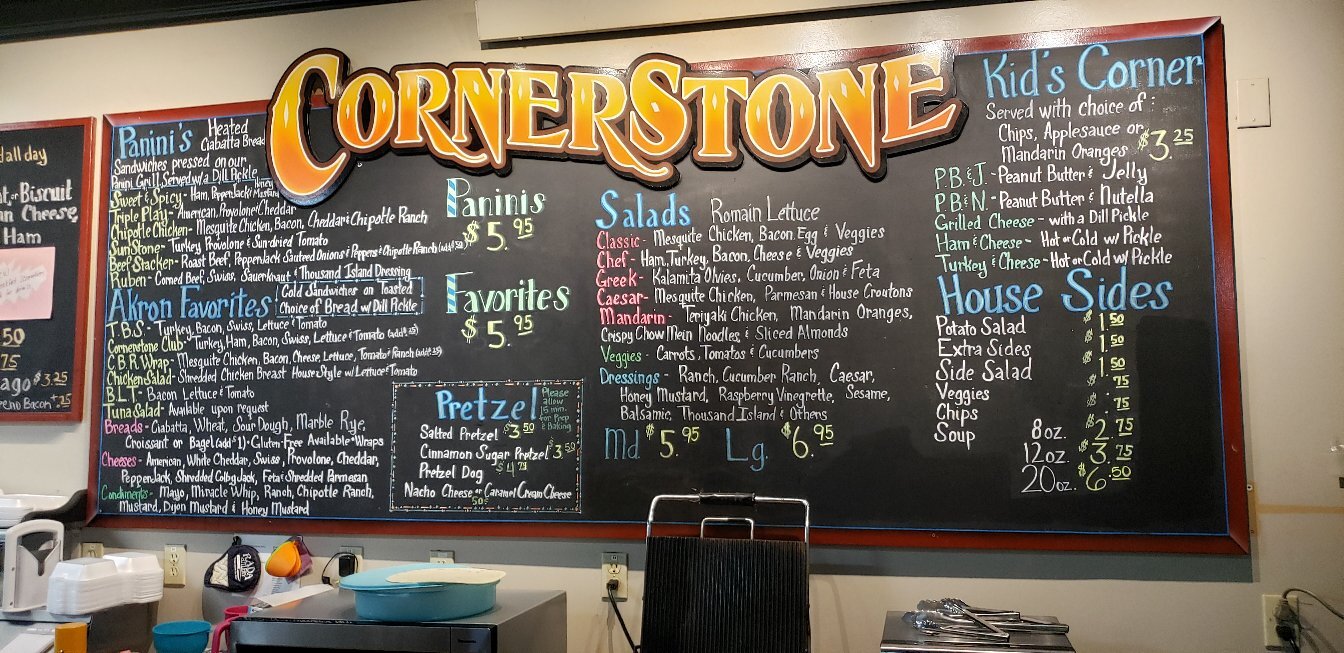 CORNERSTONE
all day
or Biscuit
Cheese,
Ham
50
75
$3.25
Bacon + .75
Panini's Heated
Ciabatta Bread
Sandwiches pressed on our
Panini Grill, Served w/a Dill Pickle
Sweet & Spicy - Ham, PepperJack & Honey Mustard
Triple Play - American, Provolone & Cheddar
Chipotle Chicken - Mesquite Chicken, Bacon, Cheddar & Chipotle Ranch
SunStone - Turkey, Provolone & Sundried Tomato
Beef Stacker - Roast Beef, PepperJack Sauteed Onions & Peppers & Chipotle Ranch (add .50)
Ruben - Corned Beef, Swiss, Sauerkraut & Thousand Island Dressing
Akron Favorites
Cold Sandwiches on Toasted
Choice of Bread w/ Dill Pickle
T.B.S. - Turkey, Bacon, Swiss, Lettuce & Tomato
Cornerstone Club - Turkey, Ham, Bacon, Swiss, Lettuce & Tomato (add .25)
C.B.R. Wrap - Mesquite Chicken, Bacon, Cheese, Lettuce, Tomato & Ranch (add .25)
Chicken Salad - Shredded Chicken Breast House Style w/ Lettuce & Tomato
B.L.T - Bacon Lettuce & Tomato
Tuna Salad - Available upon request
Breads - Ciabatta, Wheat, Sour Dough, Marble Rye,
Croissant or Bagel (add $1) · Gluten-Free Available · Wraps
Cheeses - American, White Cheddar, Swiss, Provolone, Cheddar,
PepperJack, Shredded Colby Jack, Feta & Shredded Parmesan
Condiments - Mayo, Miracle Whip, Ranch, Chipotle Ranch,
Mustard, Dijon Mustard & Honey Mustard
Paninis
$5.95
Favorites
$5.95
Pretzel
Please
allow
15 min.
for Prep
& Baking
Salted Pretzel $3.50
Cinnamon Sugar Pretzel $3.50
Pretzel Dog $4.
Nacho Cheese or Caramel Cream Cheese
50¢
Salads Romain Lettuce
Classic - Mesquite Chicken, Bacon, Egg & Veggies
Chef - Ham, Turkey, Bacon, Cheese & Veggies
Greek - Kalamita Olvies, Cucumber, Onion & Feta
Caesar - Mesquite Chicken, Parmesan & House Croutons
Mandarin - Teriyaki Chicken, Mandarin Oranges,
Crispy Chow Mein Noodles, & Sliced Almonds
Veggies - Carrots, Tomatos & Cucumbers
Dressings - Ranch, Cucumber Ranch, Caesar,
Honey Mustard, Raspberry Vinegrette, Sesame,
Balsamic, Thousand Island & Others
Md $5.95 Lg. $6.95
Kid's Corner
Served with choice of:
Chips, Applesauce or
Mandarin Oranges $3.25
P.B.&J. - Peanut Butter & Jelly
P.B.&N. - Peanut Butter & Nutella
Grilled Cheese - with a Dill Pickle
Ham & Cheese - Hot or Cold w/ Pickle
Turkey & Cheese - Hot or Cold w/ Pickle
House Sides
Potato Salad $1.50
Extra Sides $1.50
Side Salad $1.50
Veggies $.75
Chips $.75
Soup 8oz. $2.75
12oz. $3.75
20oz. $6.50